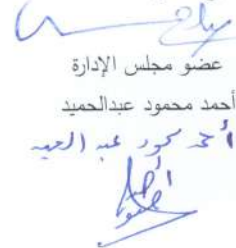 عضو مجلس الإدارة
أحمد محمود عبدالحميد
أحمد محمود عبد الحميد